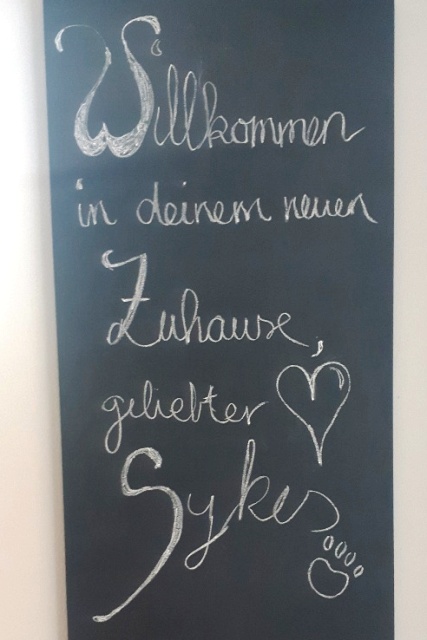 Willkommen
in deinem neuen
Zuhause,
geliebter
Sykes